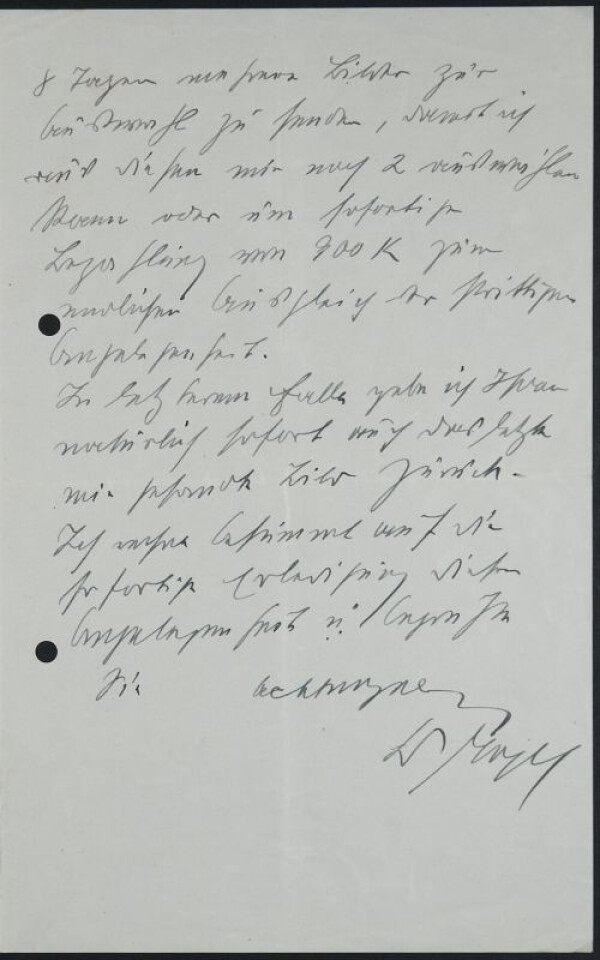 8 Tagen mehrere Bilder zur
Auswahl zu senden, damit ich
aus diesen mir noch 2 auswählen
kann oder um sofortige
Bezahlung von 900 K zum
endlichen Ausgleich der strittigen
Angelegenheit.
In letzterem Falle gebe ich Ihnen
natürlich sofort auch das letzte
mir gesandte Bild zurück.
Ich rechne bestimmt auf die
sofortige Erledigung dieser
Angelegenheit u. begrüße
Sie achtungsvoll
Dr